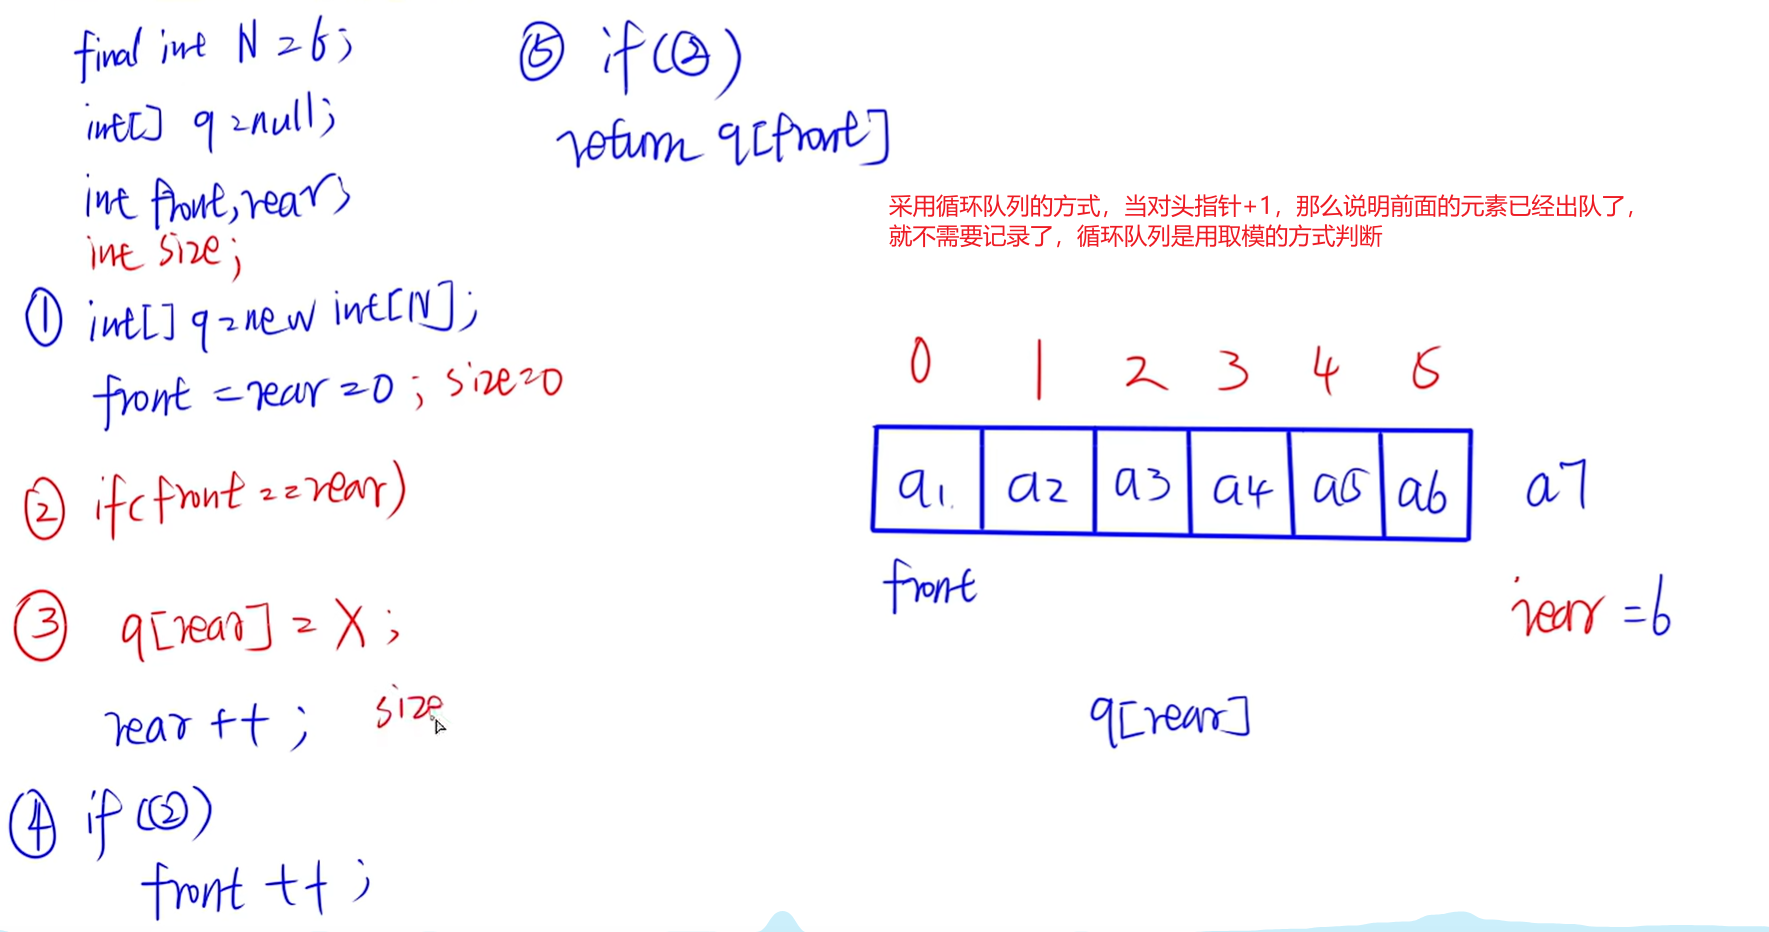 final int N=6;
int[] q=null;
int front,rear;
int size;
① int[] q=new int[N];
front=rear=0; size=0
② if(front==rear)
③ q[rear]=X;
rear++; size
④ if(②)
front++;
⑤ if(②)
return q[front]
采用循环队列的方式，当对头指针+1，那么说明前面的元素已经出队了，
就不需要记录了，循环队列是用取模的方式判断
0 1 2 3 4 5
a1 a2 a3 a4 a5 a6 a7
front
rear=6
q[rear]